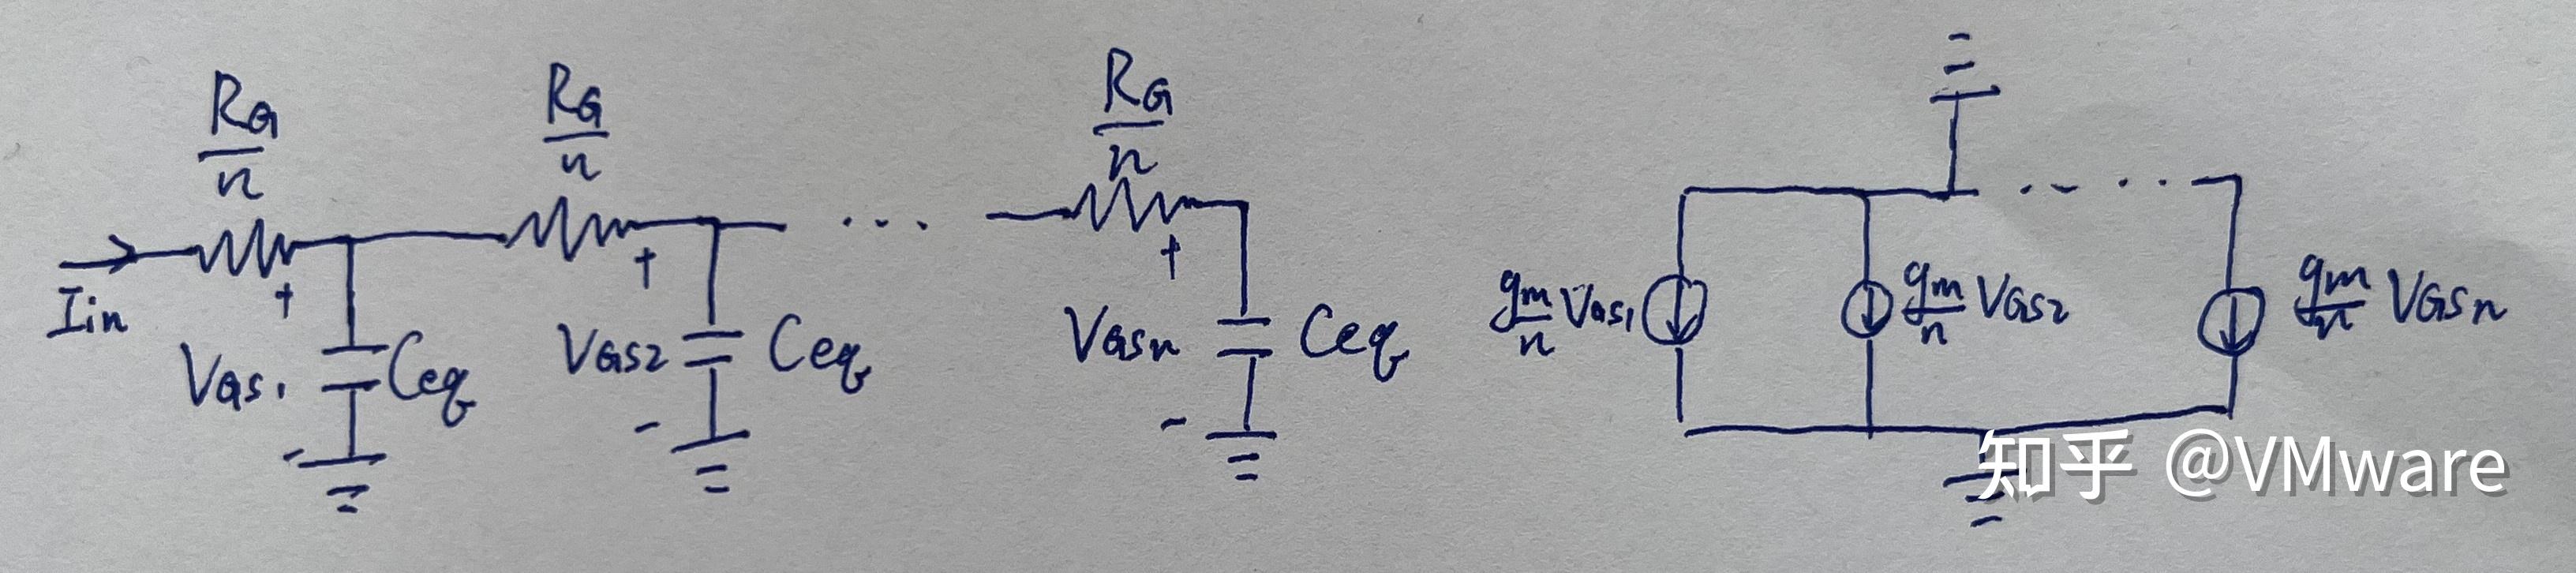 R_G/n
R_G/n
R_G/n
I_in
+
V_GS1
-
C_eq
+
V_GS2
-
C_eq
...
+
V_GSn
-
C_eq
g_m/n V_GS1
g_m/n V_GS2
....
g_m/n V_GSn
知乎 @VMware